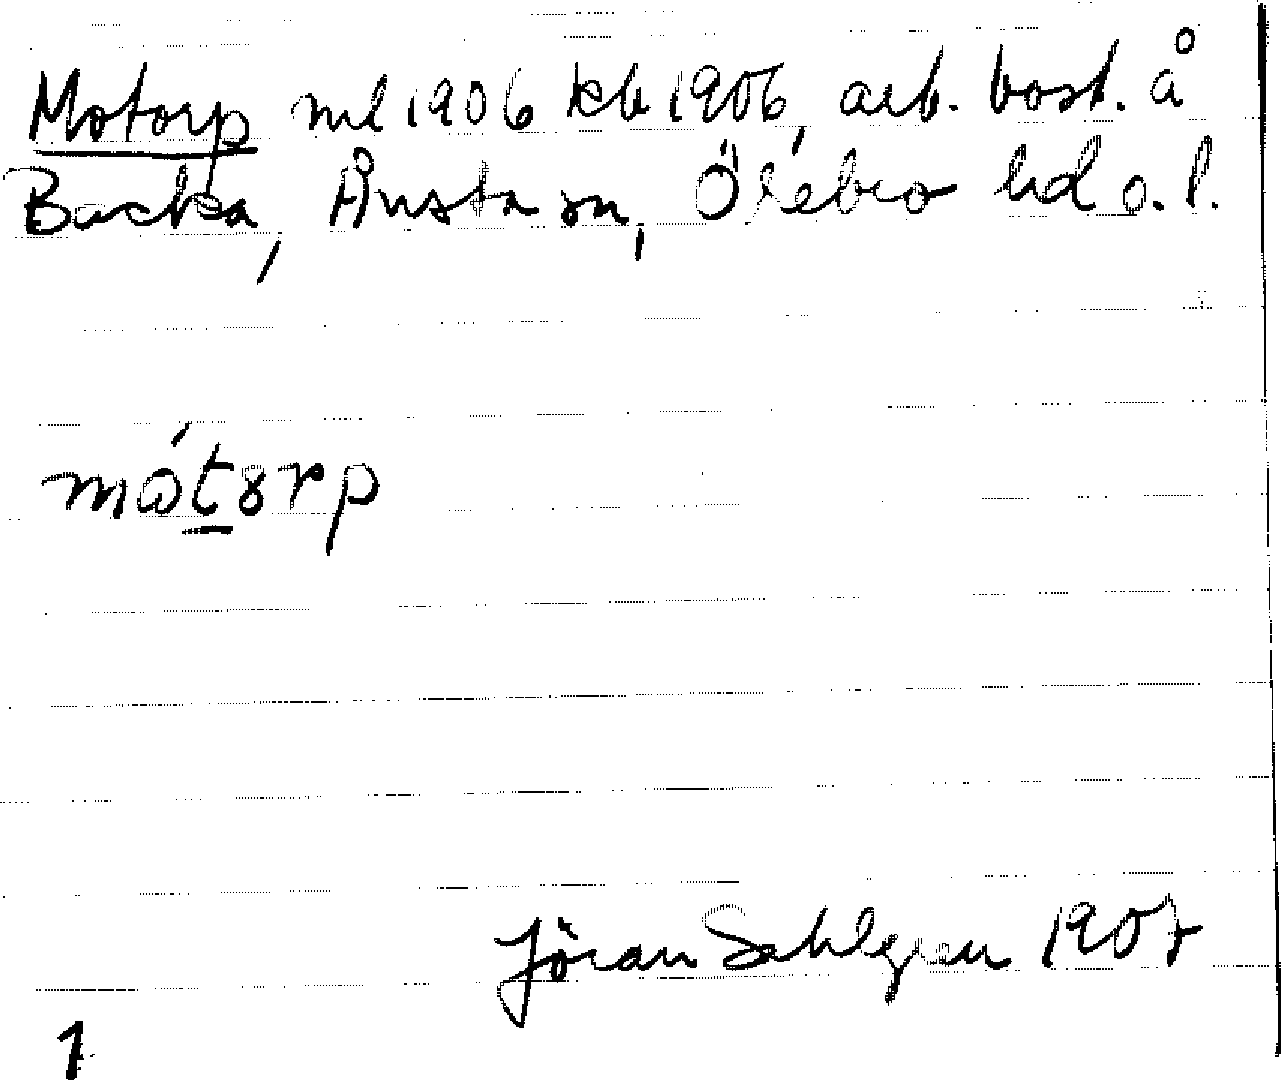 Motorp ml 1906 kb 1906, arb. bost. å
Backa, Ånsta sn, Örebro hd o. l.
mo̍torp
Jöran Sahlgren 1907
1